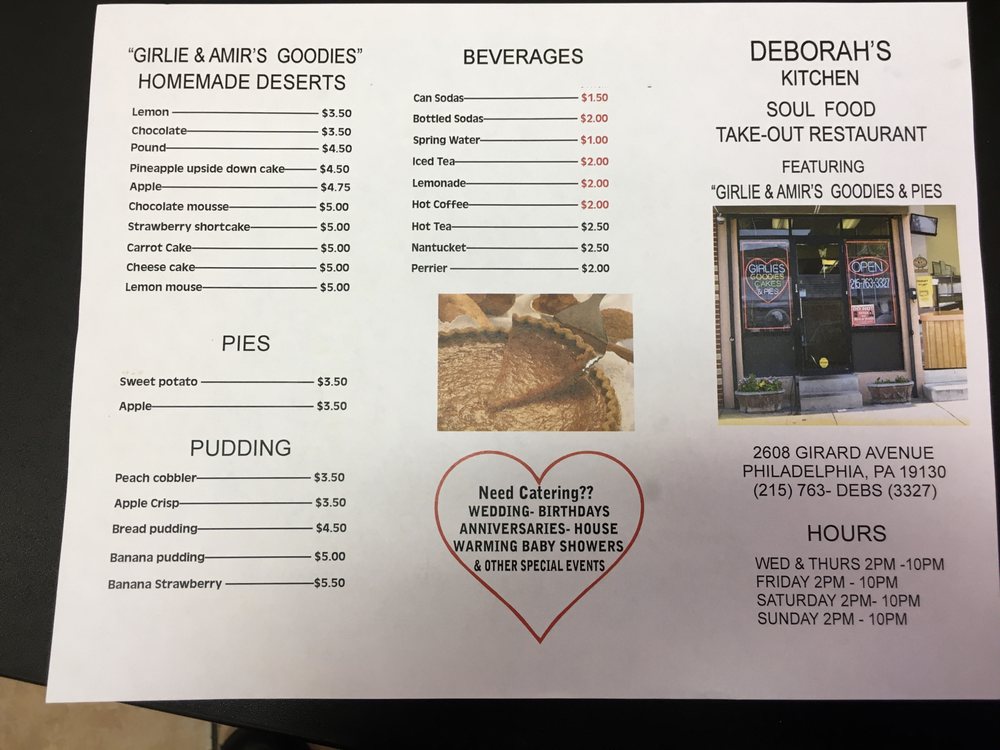 "GIRLIE & AMIR'S GOODIES"
HOMEMADE DESERTS
Lemon $3.50
Chocolate $3.50
Pound $4.50
Pineapple upside down cake $4.50
Apple $4.75
Chocolate mousse $5.00
Strawberry shortcake $5.00
Carrot Cake $5.00
Cheese cake $5.00
Lemon mouse $5.00
PIES
Sweet potato $3.50
Apple $3.50
PUDDING
Peach cobbler $3.50
Apple Crisp $3.50
Bread pudding $4.50
Banana pudding $5.00
Banana Strawberry $5.50
BEVERAGES
Can Sodas $1.50
Bottled Sodas $2.00
Spring Water $1.00
Iced Tea $2.00
Lemonade $2.00
Hot Coffee $2.00
Hot Tea $2.50
Nantucket $2.50
Perrier $2.00
Need Catering??
WEDDING- BIRTHDAYS
ANNIVERSARIES- HOUSE
WARMING BABY SHOWERS
& OTHER SPECIAL EVENTS
DEBORAH'S
KITCHEN
SOUL FOOD
TAKE-OUT RESTAURANT
FEATURING
"GIRLIE & AMIR'S GOODIES & PIES
GIRLIES
GOODIES
CAKES
& PIES
OPEN
215-763-3327
2608 GIRARD AVENUE
PHILADELPHIA, PA 19130
(215) 763- DEBS (3327)
HOURS
WED & THURS 2PM -10PM
FRIDAY 2PM - 10PM
SATURDAY 2PM- 10PM
SUNDAY 2PM - 10PM